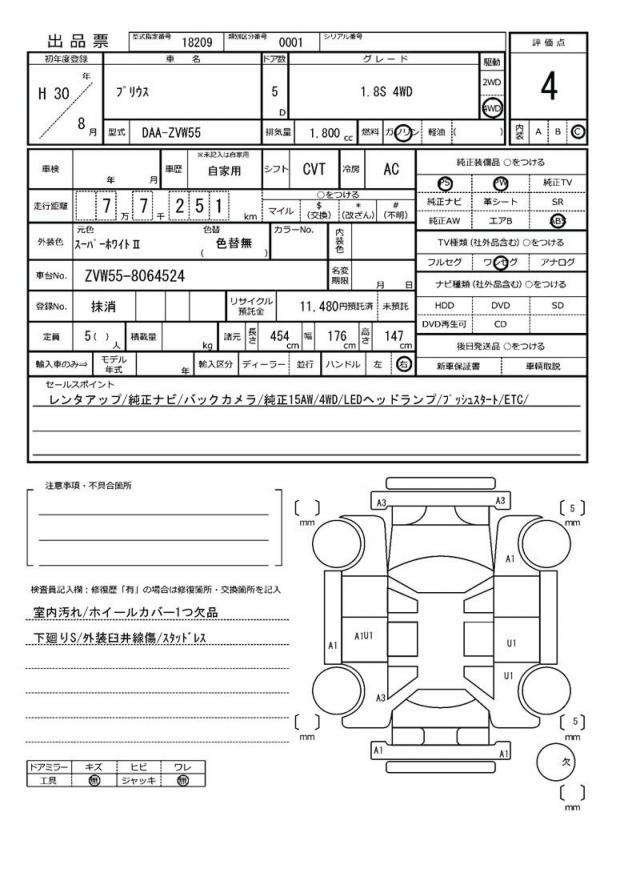 出品票 型式指定番号 18209 類別区分番号 0001 シリアル番号
評価点
4
内装 A B C
初年度登録 車名 ドア数 グレード 駆動
H 30 年 8 月 プリウス 5 D 1.8S 4WD 2WD 4WD
型式 DAA-ZVW55 排気量 1.800 cc 燃料 ガソリン 軽油 ( )
車検 年 月 車歴 ※未記入は自家用 自家用 シフト CVT 冷房 AC
走行距離 7 7 万 7 千 2 5 1 km
○をつける
マイル $ (交換) * (改ざん) # (不明)
外装色 元色 スーパーホワイトⅡ 色替 ( 色替無 ) カラーNo. 内装色
車台No. ZVW55-8064524 名変期限 月 日
登録No. 抹消 リサイクル預託金 11,480円預託済 未預託
定員 5( ) 人 積載量 kg 諸元 長さ 454 cm 幅 176 cm 高さ 147 cm
輸入車のみ⇒ モデル年式 年 輸入区分 ディーラー 並行 ハンドル 左 右
純正装備品 ○をつける
PS PW 純正TV
純正ナビ 革シート SR
純正AW エアB ABS
TV種類(社外品含む) ○をつける
フルセグ ワンセグ アナログ
ナビ種類(社外品含む) ○をつける
HDD DVD SD
DVD再生可 CD
後日発送品 ○をつける
新車保証書 車輌取説
セールスポイント
レンタアップ/純正ナビ/バックカメラ/純正15AW/4WD/LEDヘッドランプ/プッシュスタート/ETC/
注意事項・不具合箇所
検査員記入欄：修復歴「有」の場合は修復箇所・交換箇所を記入
室内汚れ/ホイールカバー1つ欠品
下廻りS/外装臼井線傷/スタッドレス
ドアミラー キズ ヒビ ワレ
工具 無 ジャッキ 無
A3 A3
[ ] mm [ 5 ] mm
A1
A1 A1U1 U1
U1
A3
[ ] mm [ 5 ] mm
A1 A1
欠
[ ] mm